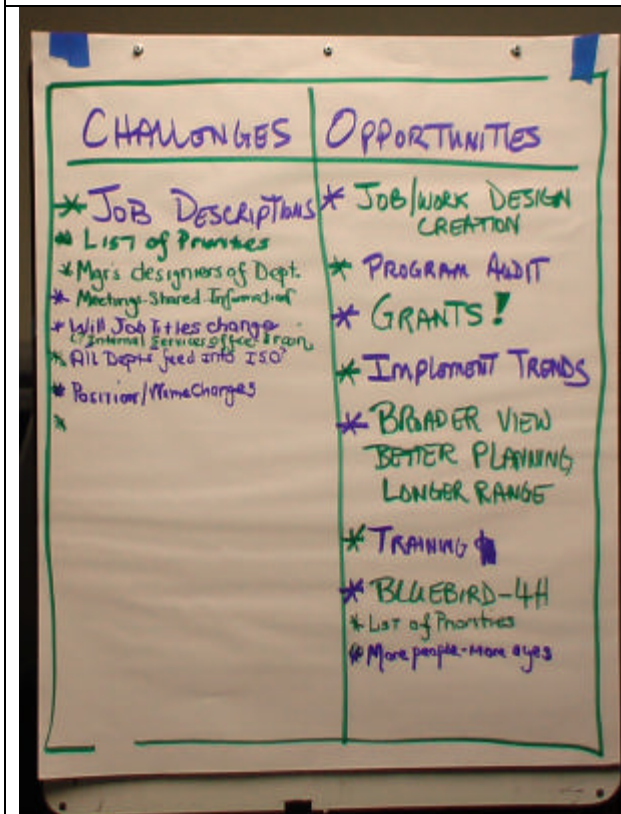 CHALLONGES
* JOB DESCRIPTIONS
* LIST of Priorities
* Mgr's designers of Dept.
* Meetings-Shared Information
* Will Job Titles change
Internal Services office
* All Depts feed into ISO?
* Position/ Changes
*
OPPORTUNITIES
* JOB/WORK DESIGN
CREATION
* PROGRAM AUDIT
* GRANTS!
* IMPLEMENT TRENDS
* BROADER VIEW
BETTER PLANNING
LONGER RANGE
* TRAINING
* BLUEBIRD-4H
* LIST of Priorities
* More people-More eyes